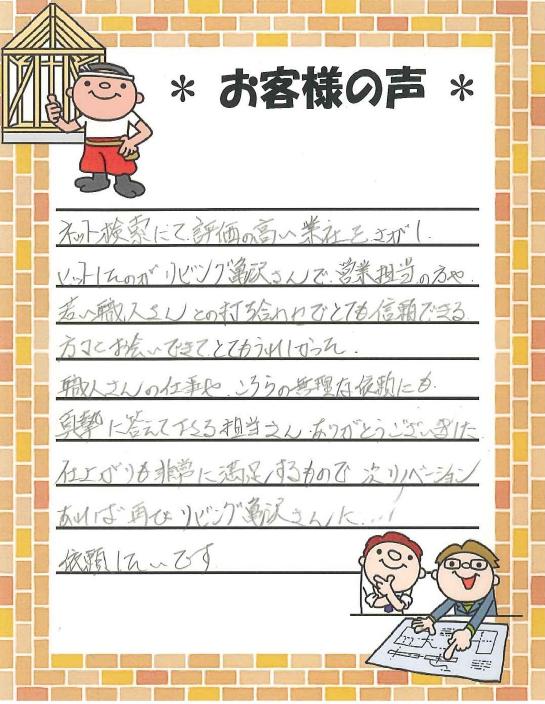 ＊ お客様の声 ＊
ネット検索にて評価の高い業社をさがし、
ヒットしたのがリビング亀沢さんで、営業担当の方や
若い職人さんとの打ち合わせでとても信頼できる
方々とお会いできて、とてもうれしかった。
職人さんの仕事や、こちらの無理な依頼にも
真摯に答えて下さる担当さん、ありがとうございました
仕上がりも非常に満足するもので 次リノベーション
あれば再びリビング亀沢さんに…
依頼したいです